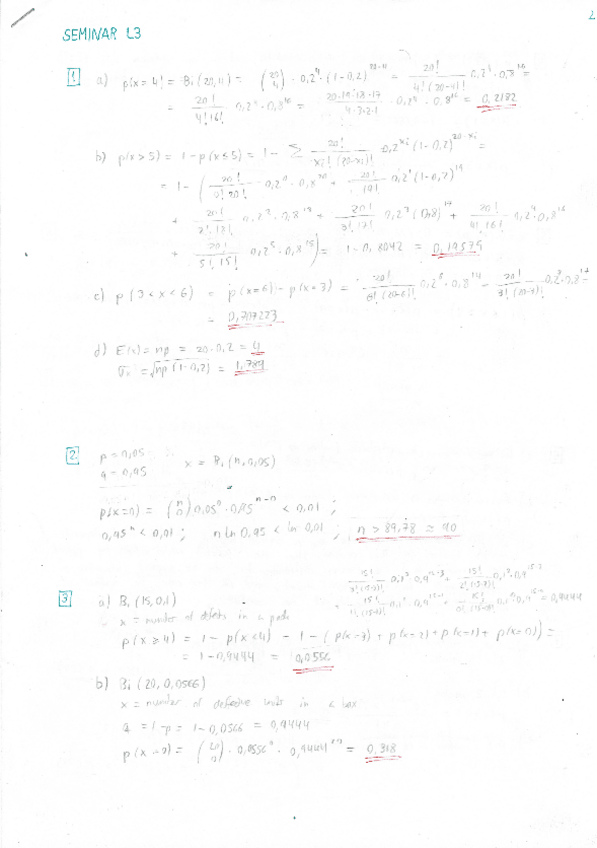 2
SEMINAR L3
1 a) p(x=4) = Bi(20,4) = (20 4) · 0,2⁴ · (1-0,2)²⁰⁻⁴ = 20! / 4!(20-4)! 0,2⁴ · 0,8¹⁶ =
= 20! / 4!16! · 0,2⁴ · 0,8¹⁶ = 20·19·18·17 / 4·3·2·1 · 0,2⁴ · 0,8¹⁶ = 0,2182
b) p(x>5) = 1 - p(x≤5) = 1 - Σ 20! / xi!(20-xi)! 0,2^xi (1-0,2)^20-xi =
= 1 - ( 20! / 0!20! 0,2⁰ · 0,8²⁰ + 20! / 19! 0,2¹ (1-0,2)¹⁹
+ 20! / 2!18! 0,2² · 0,8¹⁸ + 20! / 3!17! 0,2³ (0,8)¹⁷ + 20! / 4!16! 0,2⁴ 0,8¹⁶
+ 20! / 5!15! 0,2⁵ · 0,8¹⁵ ) = 1 - 0,8042 = 0,19579
c) p(3<x<6) = p(x=6) - p(x=3) = 20! / 6!(20-6)! 0,2⁶ · 0,8¹⁴ - 20! / 3!(20-3)! 0,2³ 0,8¹⁷ =
= 0,707223
d) E(x) = np = 20·0,2 = 4
= √np(1-0,2) = 1,789
2 p = 0,05
q = 0,95
x = Bi(n,0,05)
p(x=0) = (n 0) 0,05⁰ · 0,95ⁿ⁻⁰ < 0,01 ;
0,95ⁿ < 0,01 ; n ln 0,95 < ln 0,01 ; n > 89,78 ≃ 90
3 a) Bi(15,0,1)
x = number of defects in a
15! / 3!(15-3)! 0,1³ 0,9¹⁵⁻³ + 15! / 2!(15-2)! 0,1² · 0,9¹⁵⁻²
= 0,9444
p(x≥4) = 1 - p(x<4) = 1 - ( p(x=3) + p(x=2) + p(x=1) + p(x=0) ) =
= 1 - 0,9444 = 0,0556
b) Bi(20,0,0566)
x = number of defective units in a box
q = 1-p = 1-0,0566 = 0,9444
p(x=0) = (20 0) · 0,0556⁰ · 0,9444²⁰ = 0,318